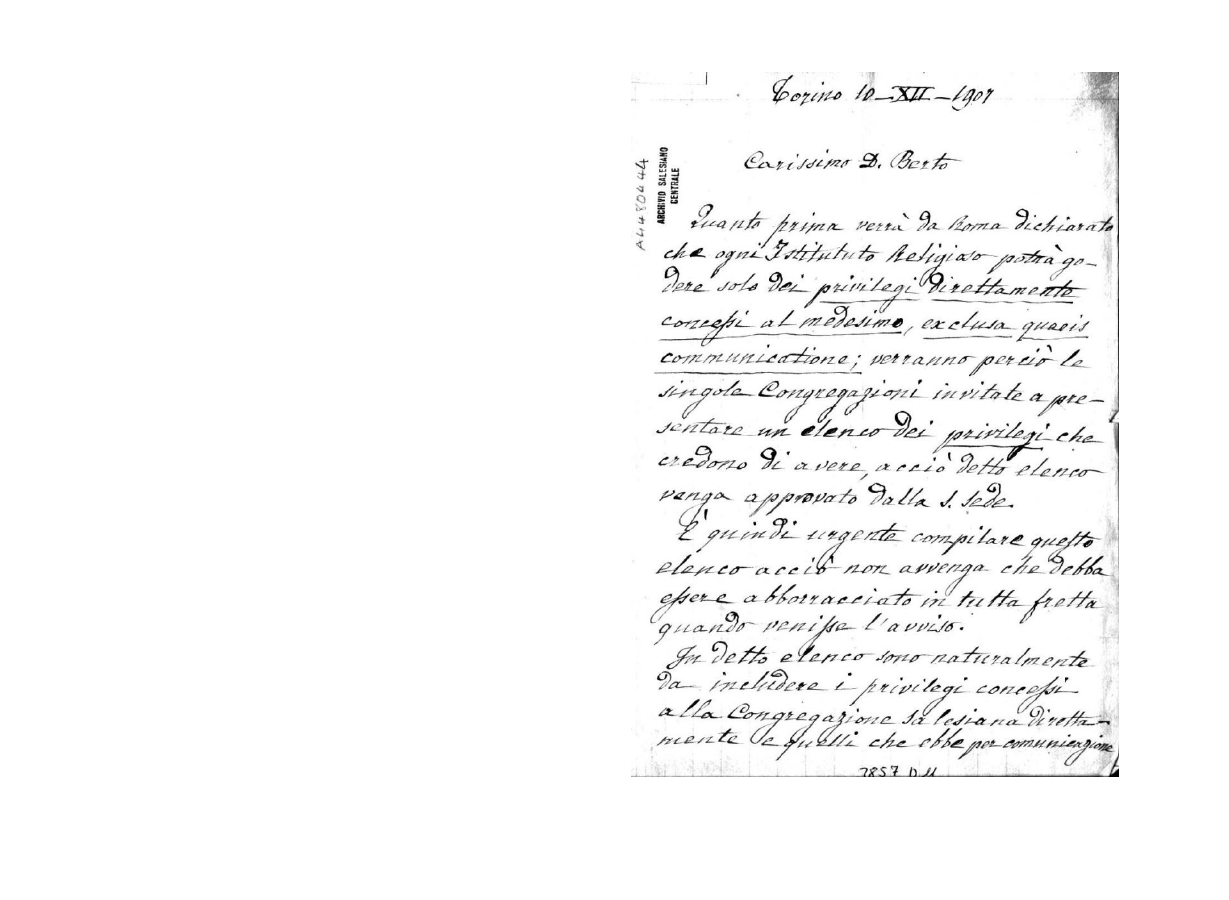 Torino 10-XII-1907
A4480444
ARCHIVIO SALESIANO
CENTRALE
Carissimo D. Berto
Quanto prima verrà da Roma dichiarato
che ogni Istitututo Religioso potrà go-
dere solo dei privilegi direttamente
concessi al medesimo, exclusa quavis
communicatione; verranno perciò le
singole Congregazioni invitate a pre-
sentare un elenco dei privilegi che
credono di avere, acciò detto elenco
venga approvato dalla S. Sede.
È quindi urgente compilare questo
elenco acciò non avvenga che debba
essere abborracciato in tutta fretta
quando venisse l'avviso.
In detto elenco sono naturalmente
da includere i privilegi concessi
alla Congregazione Salesiana diretta-
mente e quelli che ebbe per comunicazione